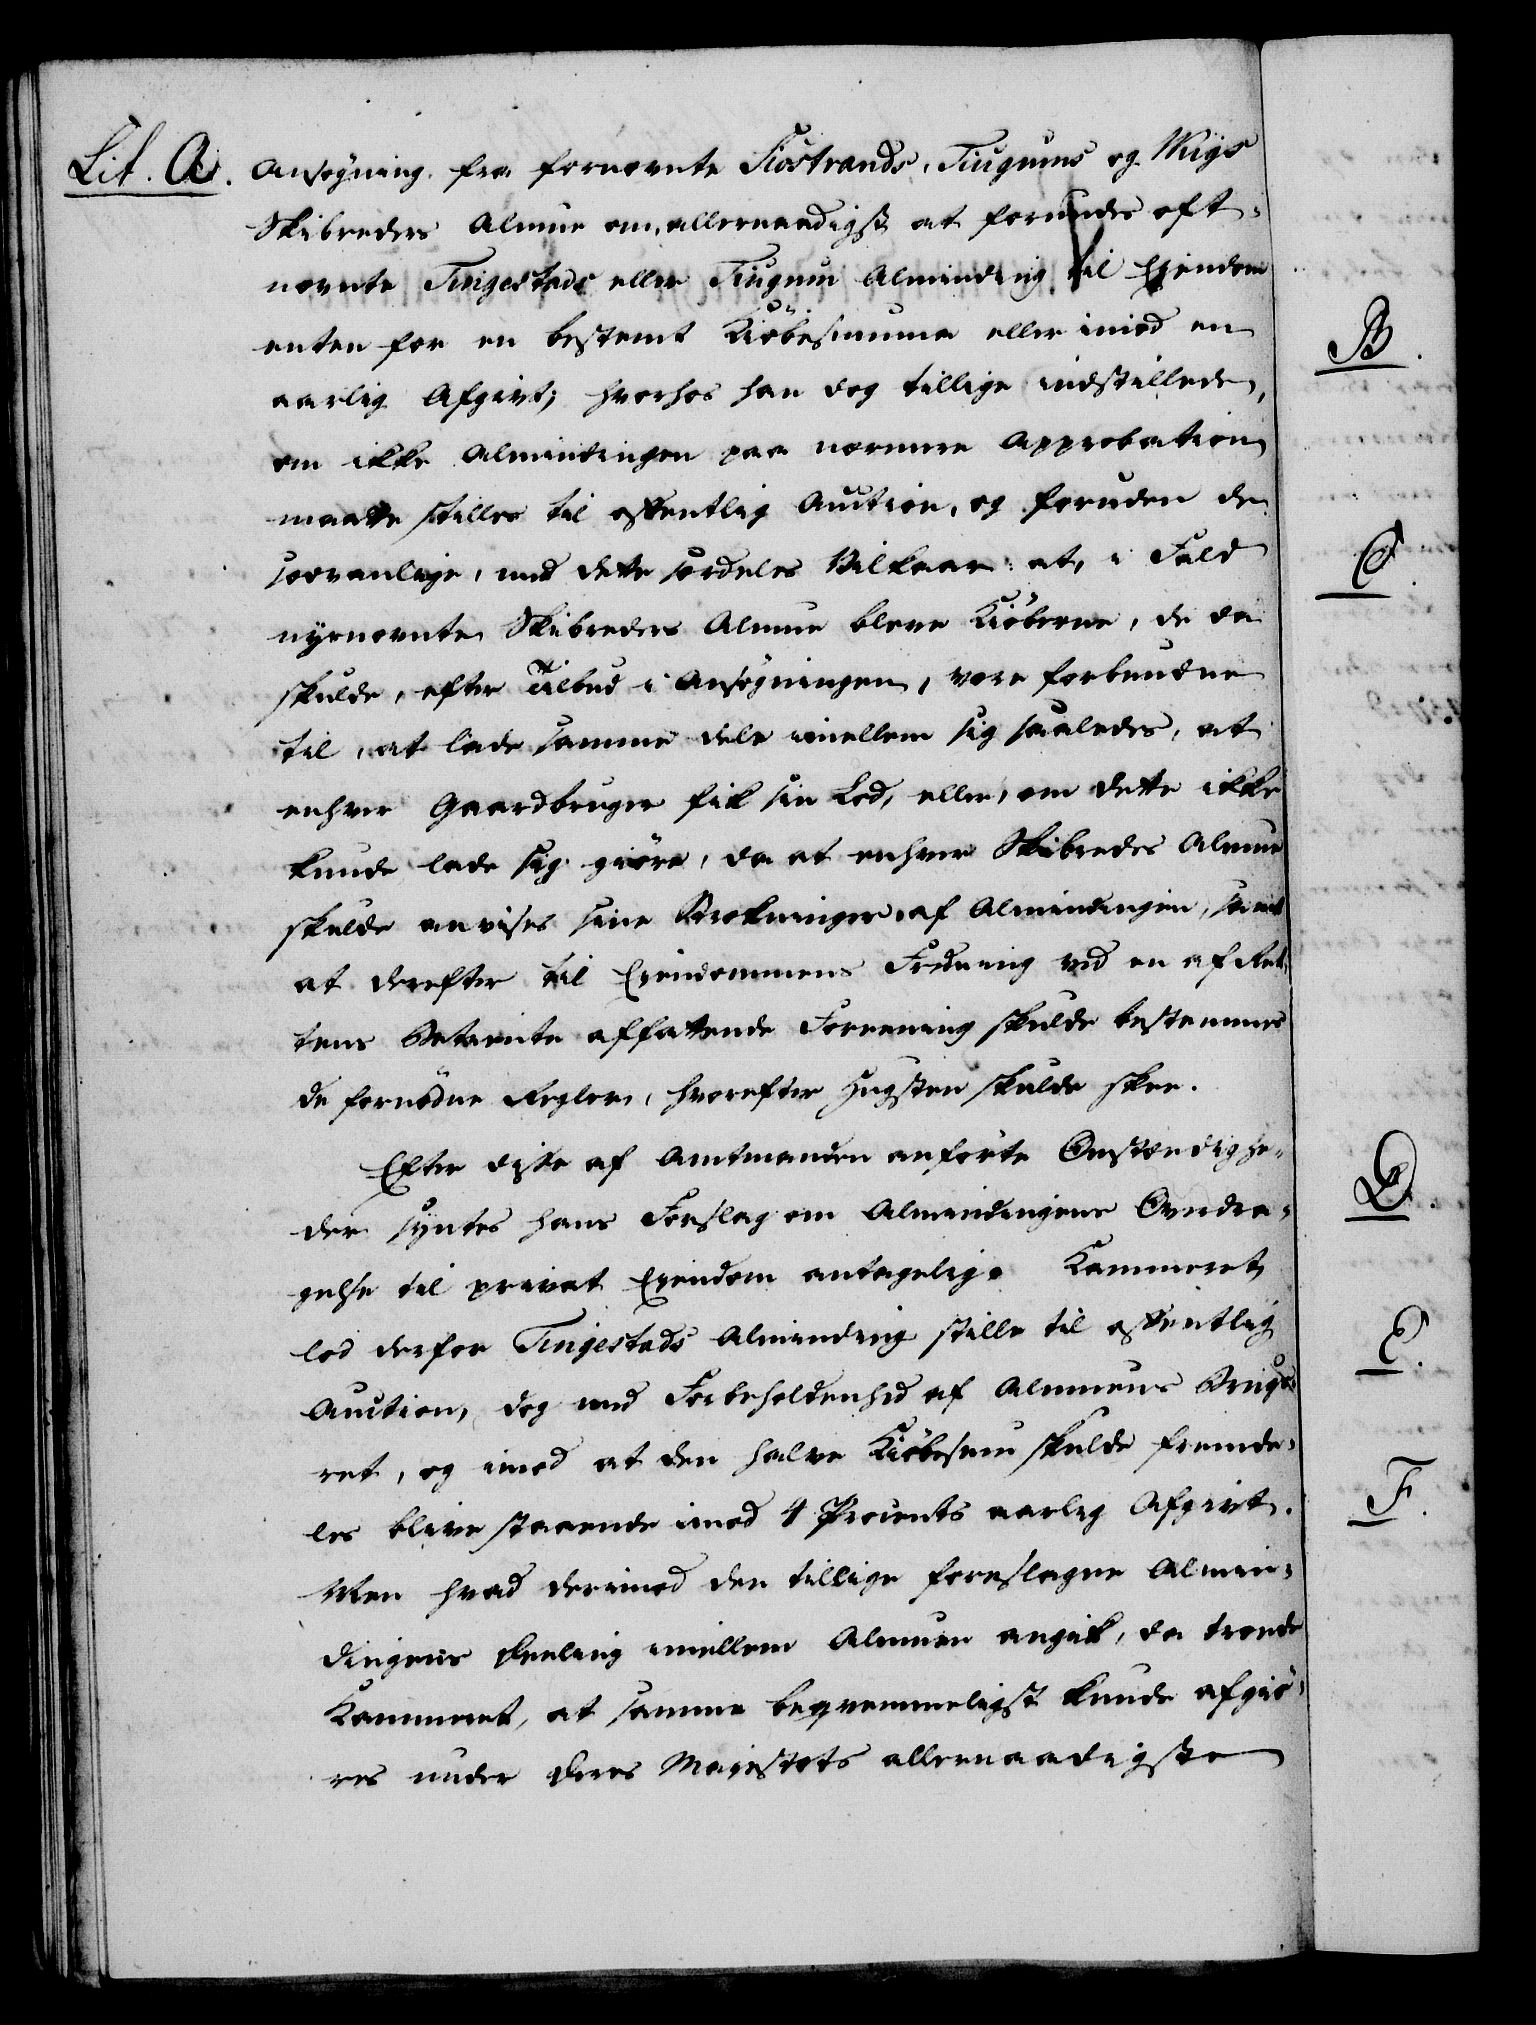 Lit. A. Ansøgning fra fornævnte Siostrands, Tiugums og Wigs
Skibreders Almue om, allernaadigst at forundes oft-
nævnte Tingestads eller Tiugum Alminding til Ejendom
enten for en bestemt Kiöbesumma eller imod en
aarlig Afgivt; hvorhos han dog tillige indstillede,
om ikke Almindingen paa nærmere Approbation
maatte stilles til offentlig Auction, og foruden de
sædvanlige, med dette særdeles Vilkaar: at, i Fald
nysnævnte Skibreders Almue bleve Kiöberne, de da
skulde, efter Tilbud i Ansøgningen, være forbundne
til, at lade samme dele imellem sig saaledes, at
enhver Gaardbruger fik sin Lod, eller, om dette ikke
kunde lade sig giöre, da at enhver Skibredes Almue
skulde anvises sine Strækninger af Almindingen, samt
at derefter til Ejendommens Fredning ved en af Ret-
tens Betiente affattende Foreening skulde bestemmes
de fornödne Regler, hvorefter Hugsten skulde skee.
Efter disse af Amtmanden anförte Omstændighe-
der syntes hans Forslag om Almindingens Overdra-
gelse til privat Ejendom antagelig. Kammeret
lod derfor Tingestads Alminding stille til offentlig
Auction, dog med Forbeholdenhed af Almuens Brugs-
ret, og imod at den halve Kiöbesum skulde fremde-
les blive staaende imod 4 Procents aarlig Afgivt.
Men hvad derimod den tillige foreslagne Almin-
dingens Deeling imellem Almuen angik, da troede
Kammeret, at samme beqvemmeligst kunde afgiö-
res under Deres Majestæts allernaadigste
B.
C.
D.
E.
F.